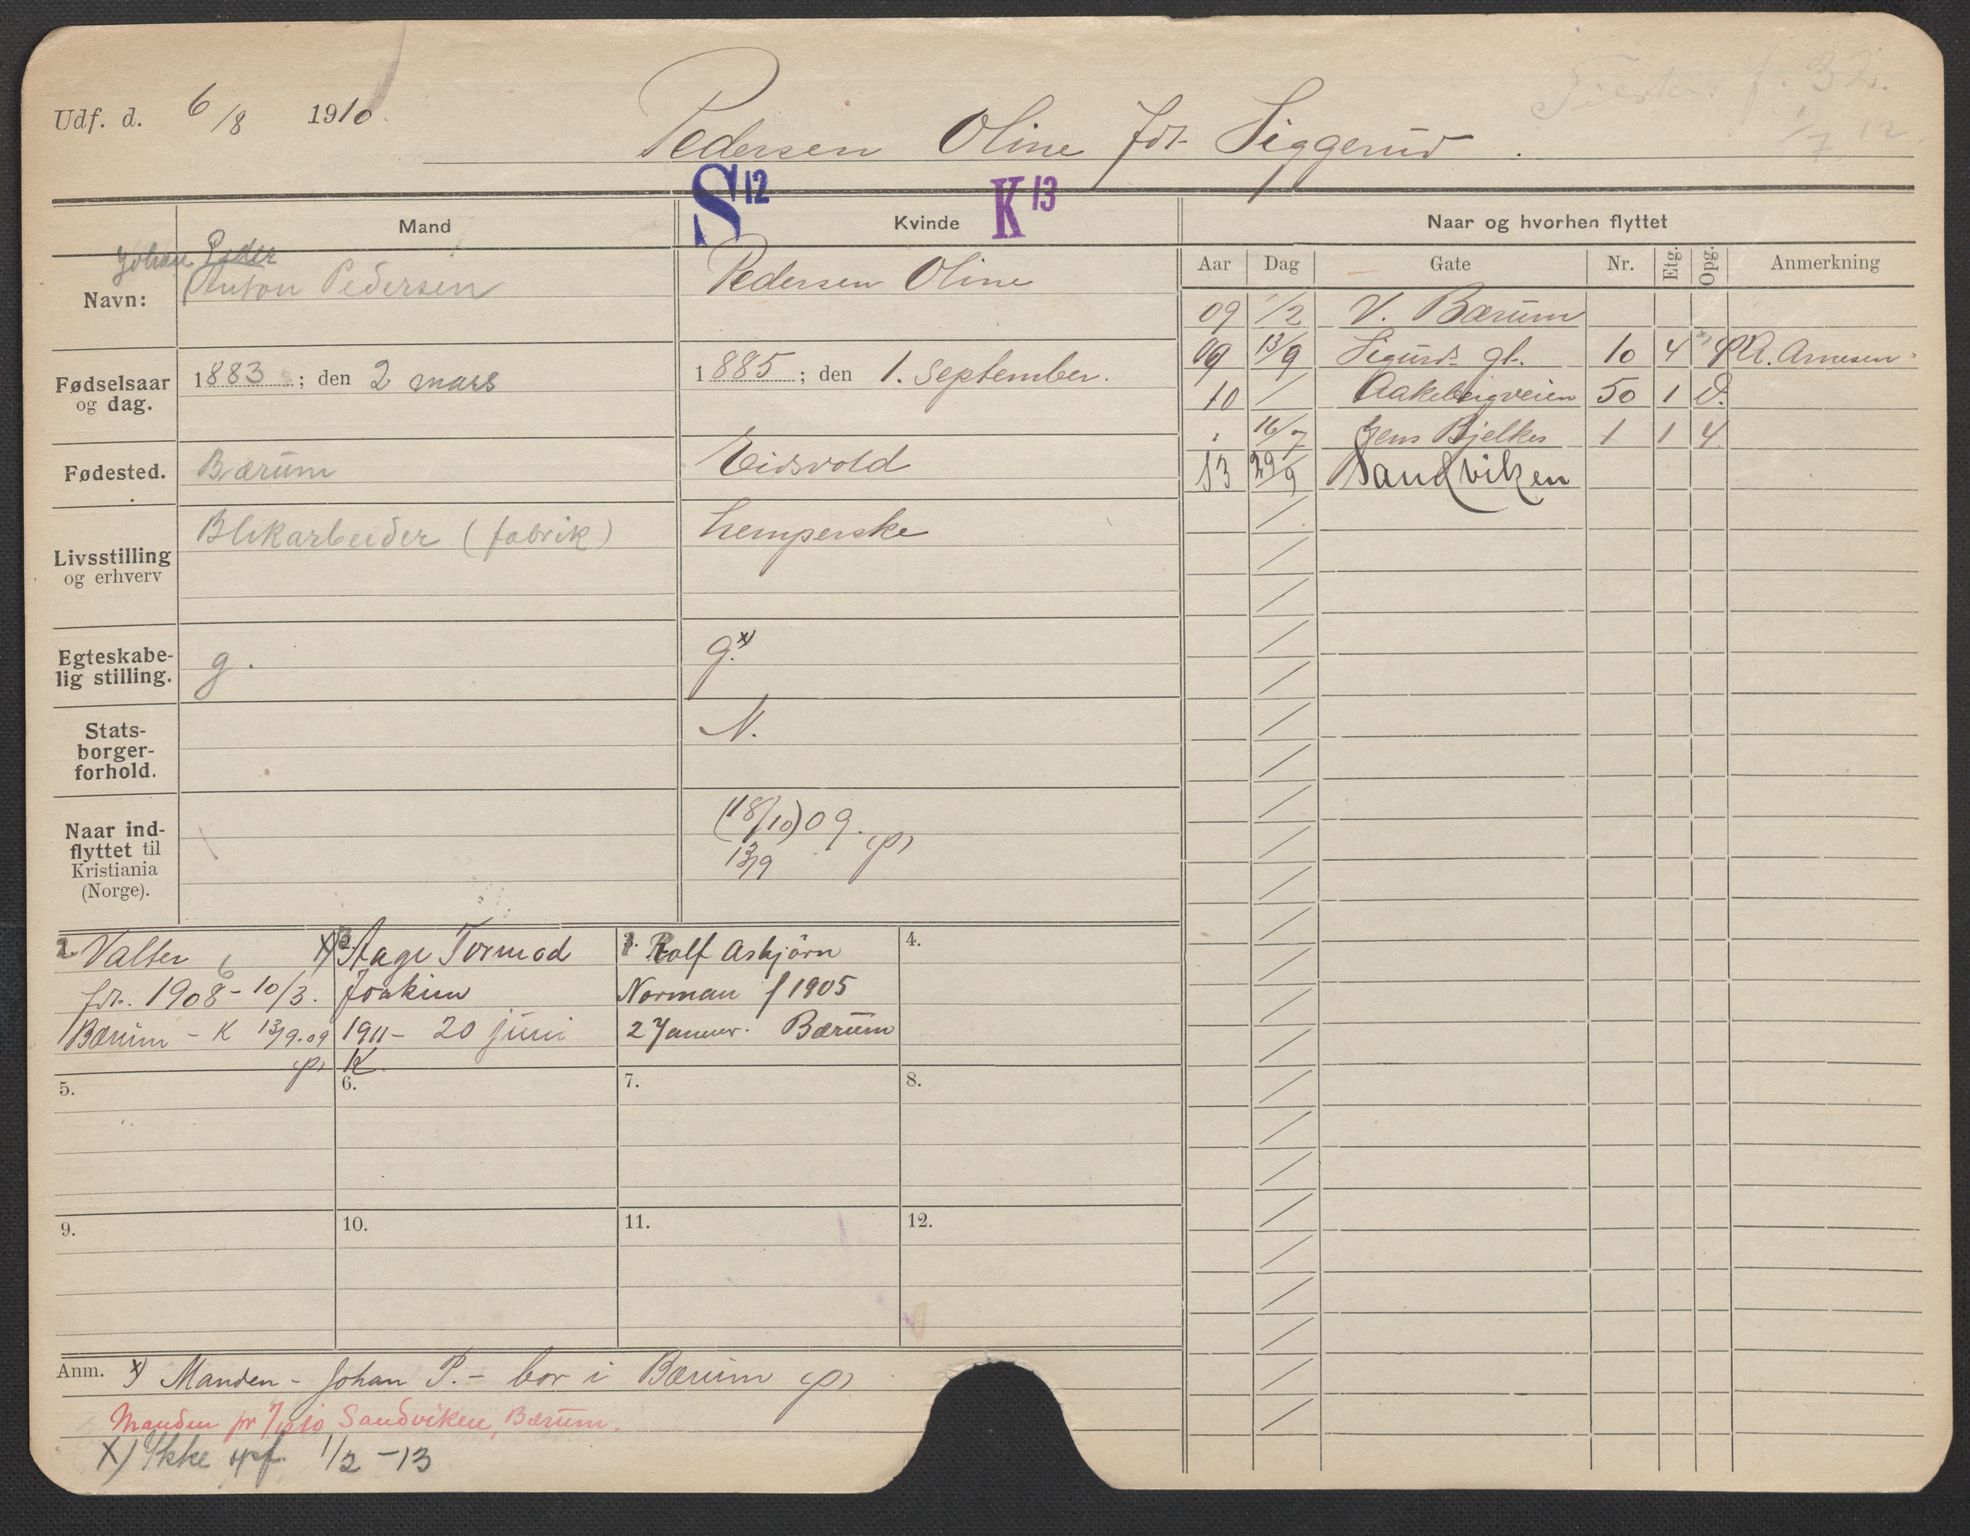 Udf. d. 6/8 1910.
Pedersen Oline fdt. Siggerud.
1/7 12
S12 K13
Mand Kvinde Naar og hvorhen flyttet
Aar Dag Gate Nr. Etg. Opg. Anmerkning
Navn: Johan Peder Anton Pedersen
Pedersen Oline
Fødselsaar og dag. 1883; den 2 mars
1885; den 1. September.
Fødested. Bærum
Eidsvold
Livsstilling og erhverv Blikarbeider (fabrik)
hemperske
Egteskabelig stilling. g.
g. x)
Statsborgerforhold.
N.
Naar indflyttet til Kristiania (Norge).
(18/10) 09.
13/9
09 1/2 V. Bærum
09 13/9 Sigurds gt. 10 4 A. Arnesen
10 / Aakebergveien 50 1
16/7 Jens Bjelkes 1 1 4
13 29/9 Sandviken
2. Valter
fdt. 1908 - 10/3.
Bærum - K 13/9.09
x) 3. Aage Tormod
Joakim
1911 - 20 juni
K.
1. Rolf Asbjörn
Norman f 1905
2 Januar. Bærum
4.
5. 6. 7. 8.
9. 10. 11. 12.
Anm. x) Manden - Johan P. - bor i Bærum
Manden pr Sandviken, Bærum.
x) Ikke opf. 1/2 - 13